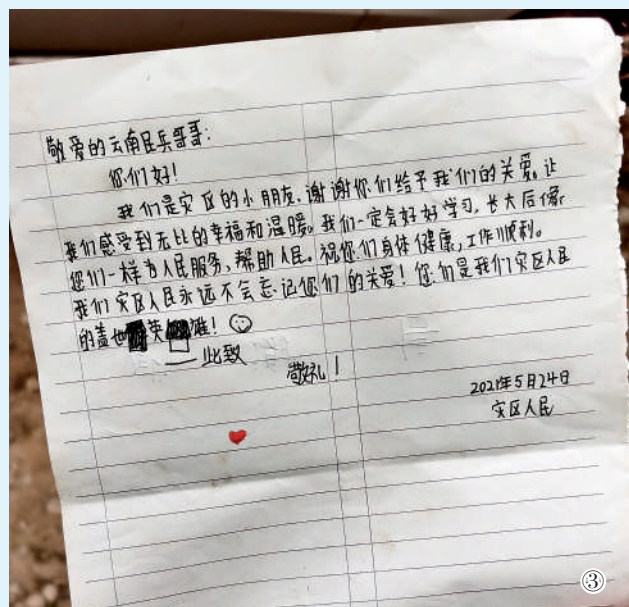 敬爱的云南民兵哥哥：
你们好！
我们是灾区的小朋友，谢谢你们给予我们的关爱。让
我们感受到无比的幸福和温暖。我们一定会好好学习，长大后像
您们一样为人民服务，帮助人民。祝您们身体健康，工作顺利。
我们灾区人民永远不会忘记您们的关爱！您们是我们灾区人民
的盖世英雄！
此致
敬礼！
2021年5月24日
灾区人民
③